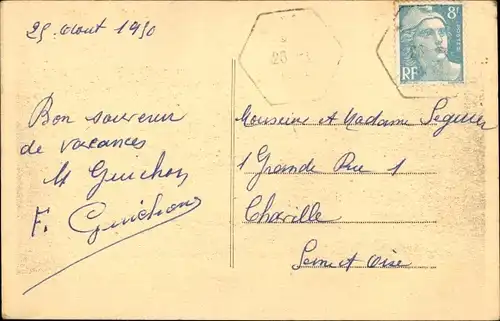 25 Aout 1950
Bon souvenir
de vacances
M Guichon
F. Guichon
8F
POSTES
RF
Monsieur et Madame Seguier
1 Grande Rue 1
Chaville
Seine et Oise